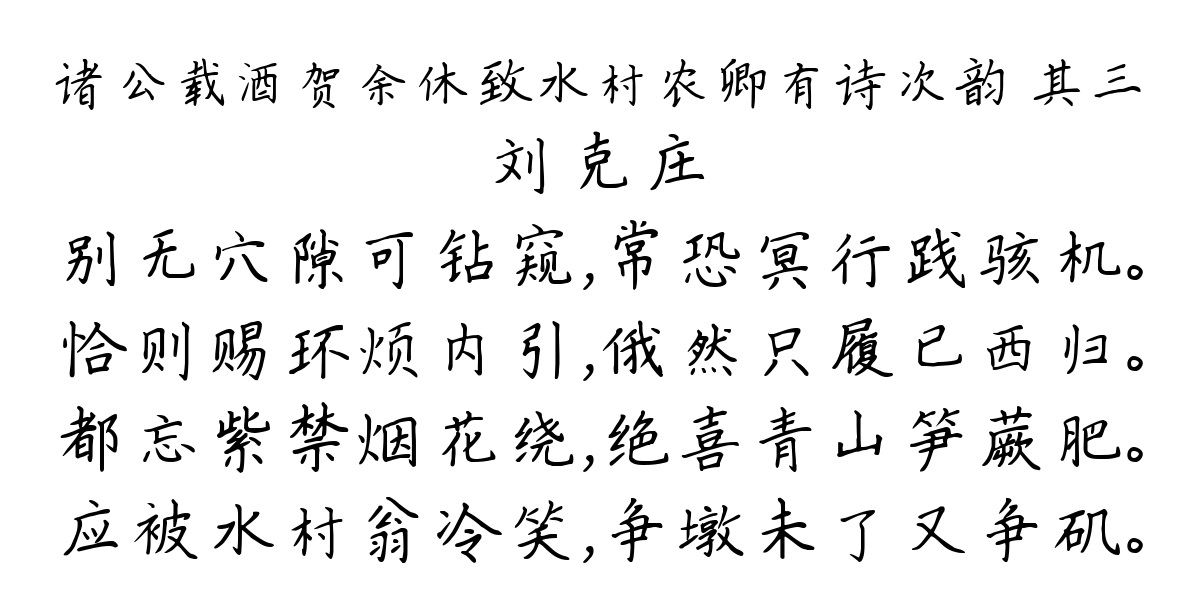 诸公载酒贺余休致水村农卿有诗次韵 其三
刘克庄
别无穴隙可钻窥,常恐冥行践骇机。
恰则赐环烦内引,俄然只履已西归。
都忘紫禁烟花绕,绝喜青山笋蕨肥。
应被水村翁冷笑,争墩未了又争矶。